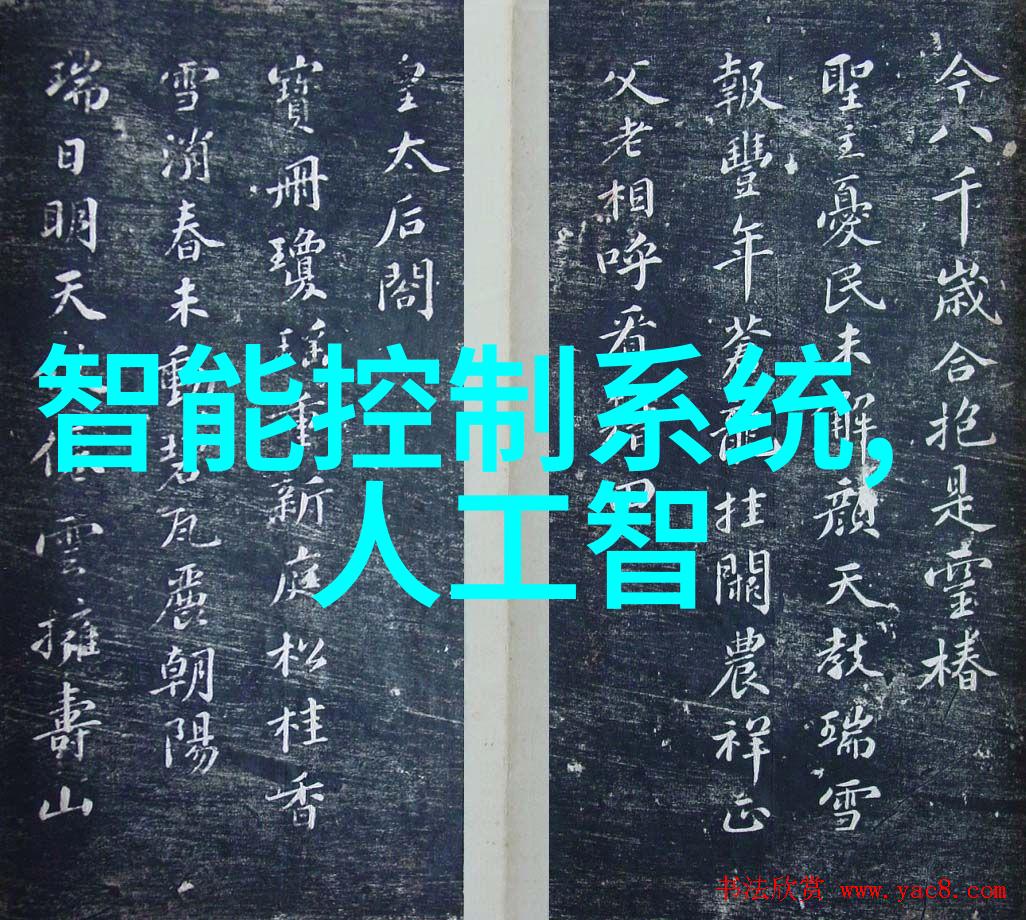 今八千歲合抱是靈椿
聖主憂民未解顏天教瑞雪
報豐年蒼龍挂闕農祥正
父老相呼看田
皇太后閣
寶冊瓊瑤重新庭松桂香
雪消春未動碧瓦麗朝陽
瑞日明天雲擁壽山
智能控制系统,
人工智
书法欣赏 www.yac8.com